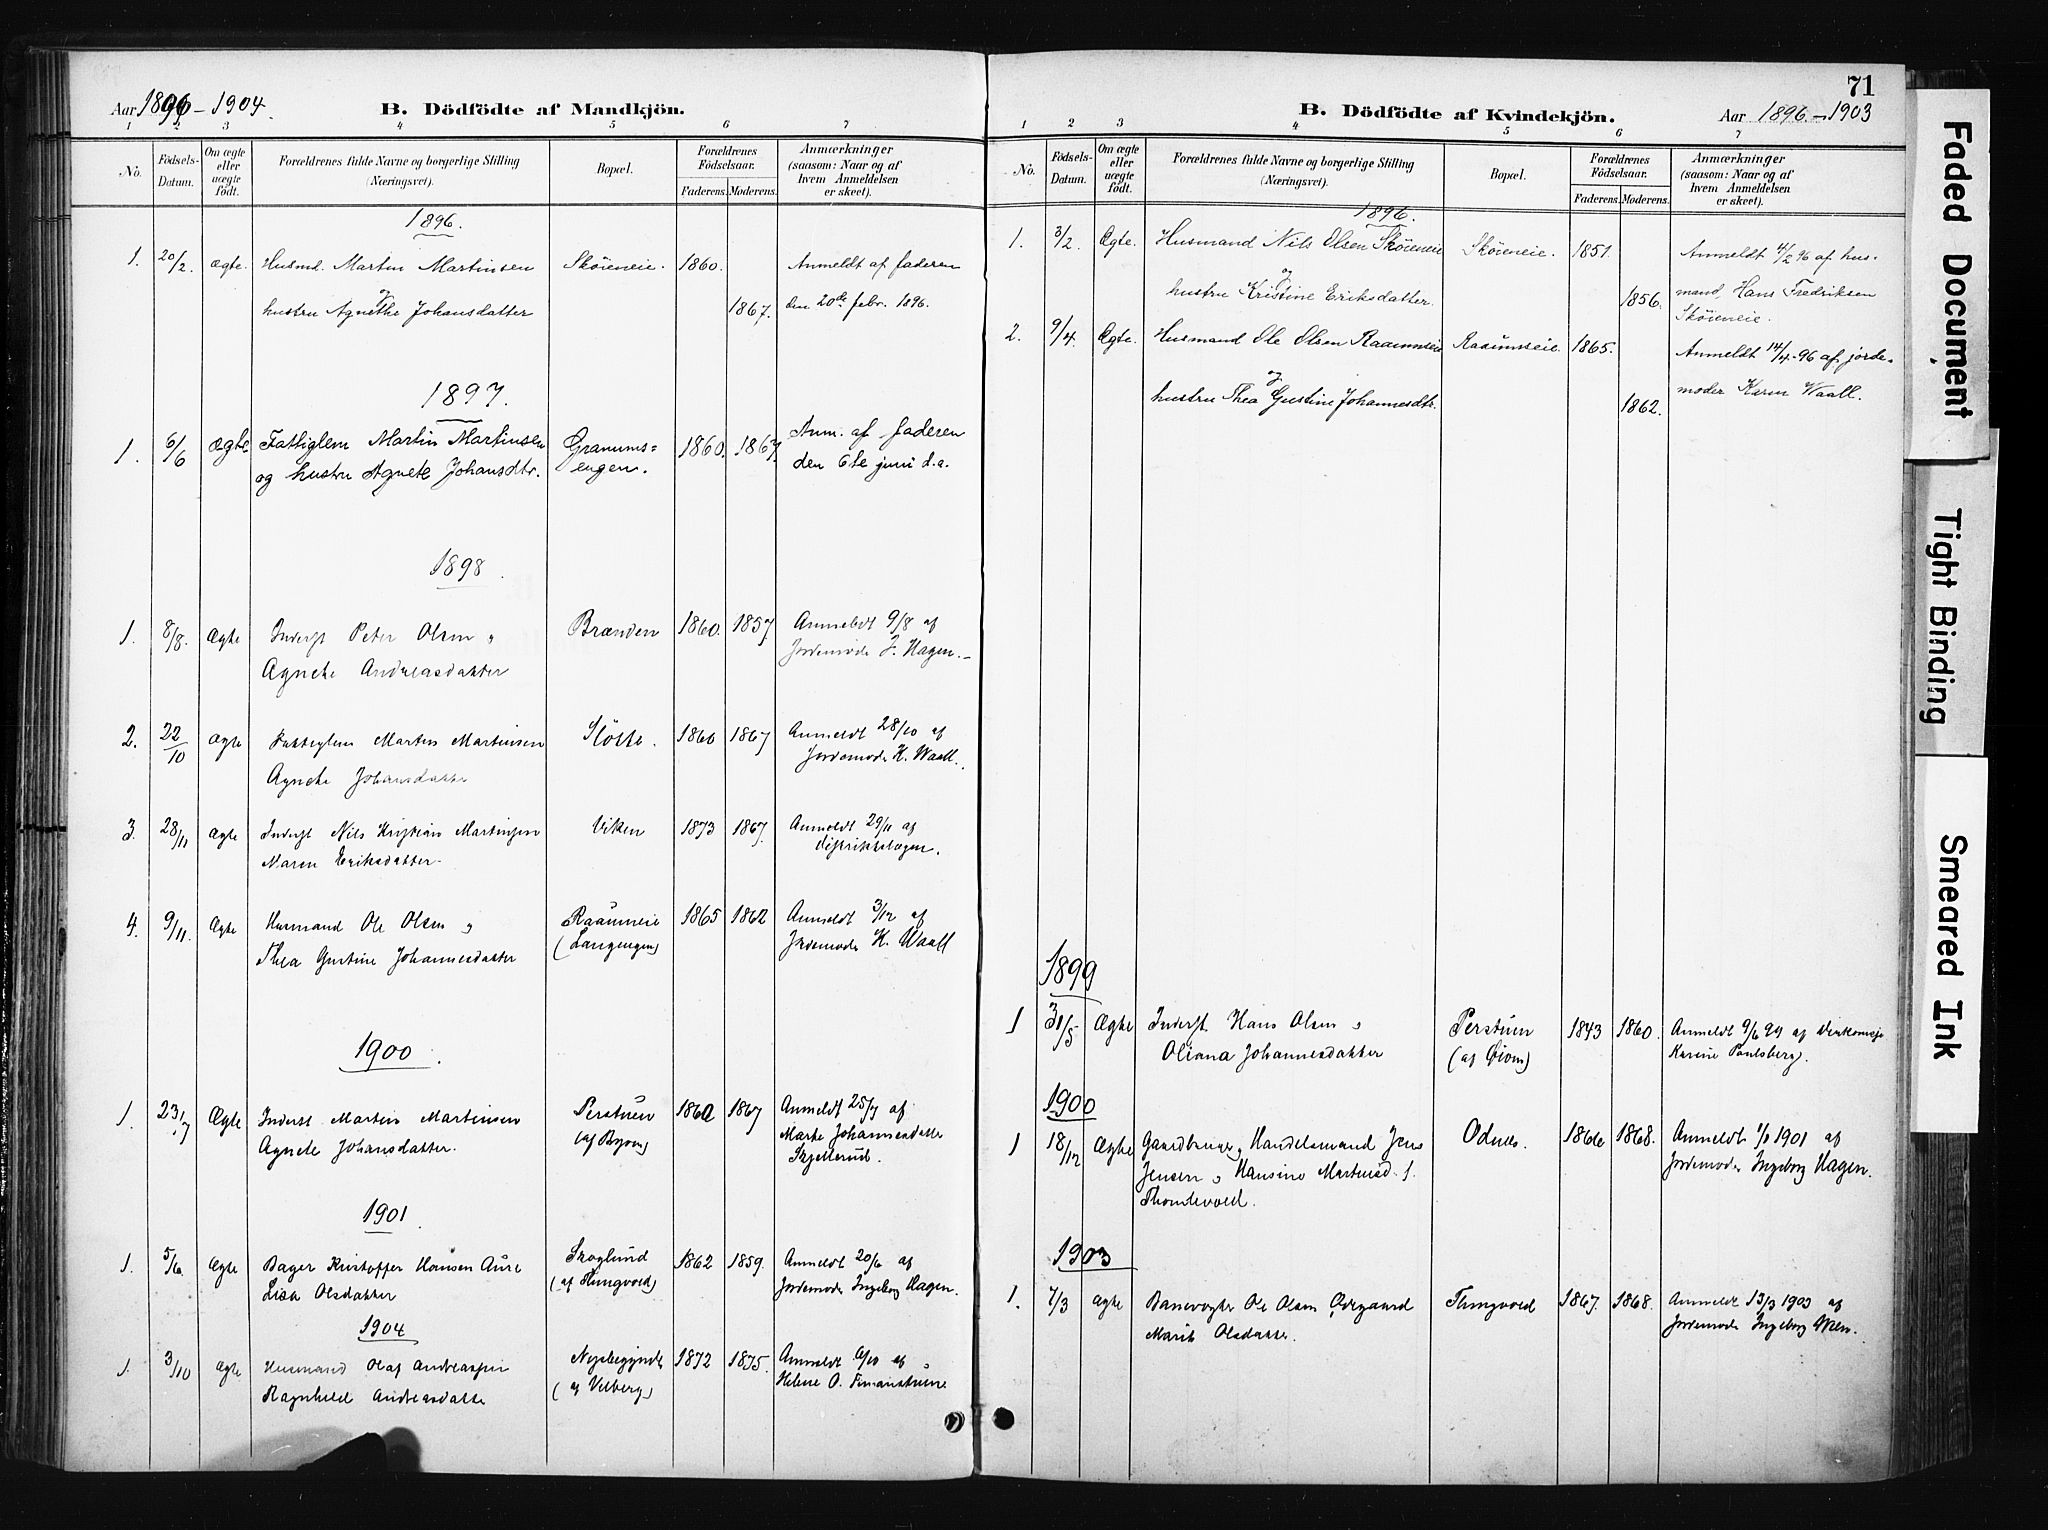 Aar 1896 - 1904.
B. Dödfödte af Mandkjön.
1 2 3 4 5 6 7
No.
Födsels-
Datum.
Om ægte
eller
uægte
födt.
Forældrenes fulde Navne og borgerlige Stilling
(Næringsvei).
Bopæl.
Forældrenes
Födselsaar.
Faderens. Moderens.
Anmærkninger
(saasom: Naar og af
hvem Anmeldelsen
er skeet).
1896.
1. 20/2. ægte. Husmd. Martin Martinsen Skőieneie. 1860. Anmeldt af faderen
og
hustru Agnethe Johansdatter 1867. den 20de febr. 1896.
1897.
1. 6/6 ægte Fattiglem Martin Martinsen Granums= 1860. 1867 Anm. af faderen
og hustru Agnete Johansdtr. engen. den 6te juni d.a.
1898.
1. 8/8. Ægte Inderst Peter Olsen og Brænden 1860. 1857 Anmeldt 9/8 af
Agnete Andreasdatter Jordemoder J. Hagen.
2. 22/10 ægte Fattiglem Martin Martinsen Slőtte. 1860 1867 Anmeldt 28/10 af
Agnete Johansdatter Jordemoder K. Waall.
3. 28/11 ægte Inderst Nils Kristian Martinsen Viken 1873 1867. Anmeldt 29/11 af
Maren Eriksdatter. distriktslægen.
4. 9/11. Ægte Husmand Ole Olsen og Raaumeie 1865 1862 Anmeldt 3/12 af
Thea Gustine Johannesdatter (Langengen) Jordemoder K. Waall
1900.
1. 23/7 Ægte Inderst Martin Martinsen Perstuen 1860 1867 Anmeldt 25/7 af
Agnete Johansdatter. Marte Johannesdatter
Skjellerud.
1901.
1. 5/6. Ægte Bager Kristoffer Hansen Aure Skoglund 1862 1859. Anmeldt 20/6 af
Lisa Olsdatter (af Thingvold) Jordemoder Ingeborg Hagen.
1904
1. 3/10 ægte Husmand Olaf Andreassen 1872 1875. Anmeldt 6/10 af
Ragnhild Andreasdatter Helene O.
71
B. Dödfödte af Kvindekjön.
Aar 1896. - 1903
1 2 3 4 5 6 7
No.
Födsels-
Datum.
Om ægte
eller
uægte
födt.
Forældrenes fulde Navne og borgerlige Stilling
(Næringsvei).
Bopæl.
Forældrenes
Födselsaar.
Faderens. Moderens.
Anmærkninger
(saasom: Naar og af
hvem Anmeldelsen
er skeet).
1896.
1. 3/2. Ægte. Husmand Nils Olsen Skőieneie Skőieneie. 1851. Anmeldt 4/2 96 af hus-
og
hustru Kristine Eriksdatter. 1856. mand, Hans Fredriksen
Skőieneie.
2. 9/4. Ægte. Husmand Ole Olsen Raaumseie Raaumseie. 1865. Anmeldt 14/4-96 af jorde-
og
hustru Thea Gustine Johannesdtr. 1862. moder Karen Waall.
1899
1 31/5 Ægte Inderst Hans Olsen og Perstuen 1843 1860. Anmeldt 9/6 99 af
Oliana Johannesdatter Karine Paulsberg.
1900
1 18/12 Ægte Gaardbruger og Handelsmand Jens Odnes. 1866 1868. Anmeldt 1/1 1901 af
Jensen og Hansine Jordemoder Ingeborg Hagen.
1903
1. 7/3 ægte Banevogter Ole Olsen Ødegaard Thingvold 1867. 1868. Anmeldt 13/3 1903 af
Marit Olsdatter. Jordemoder Ingeborg
Faded Document
Tight Binding
Smeared Ink